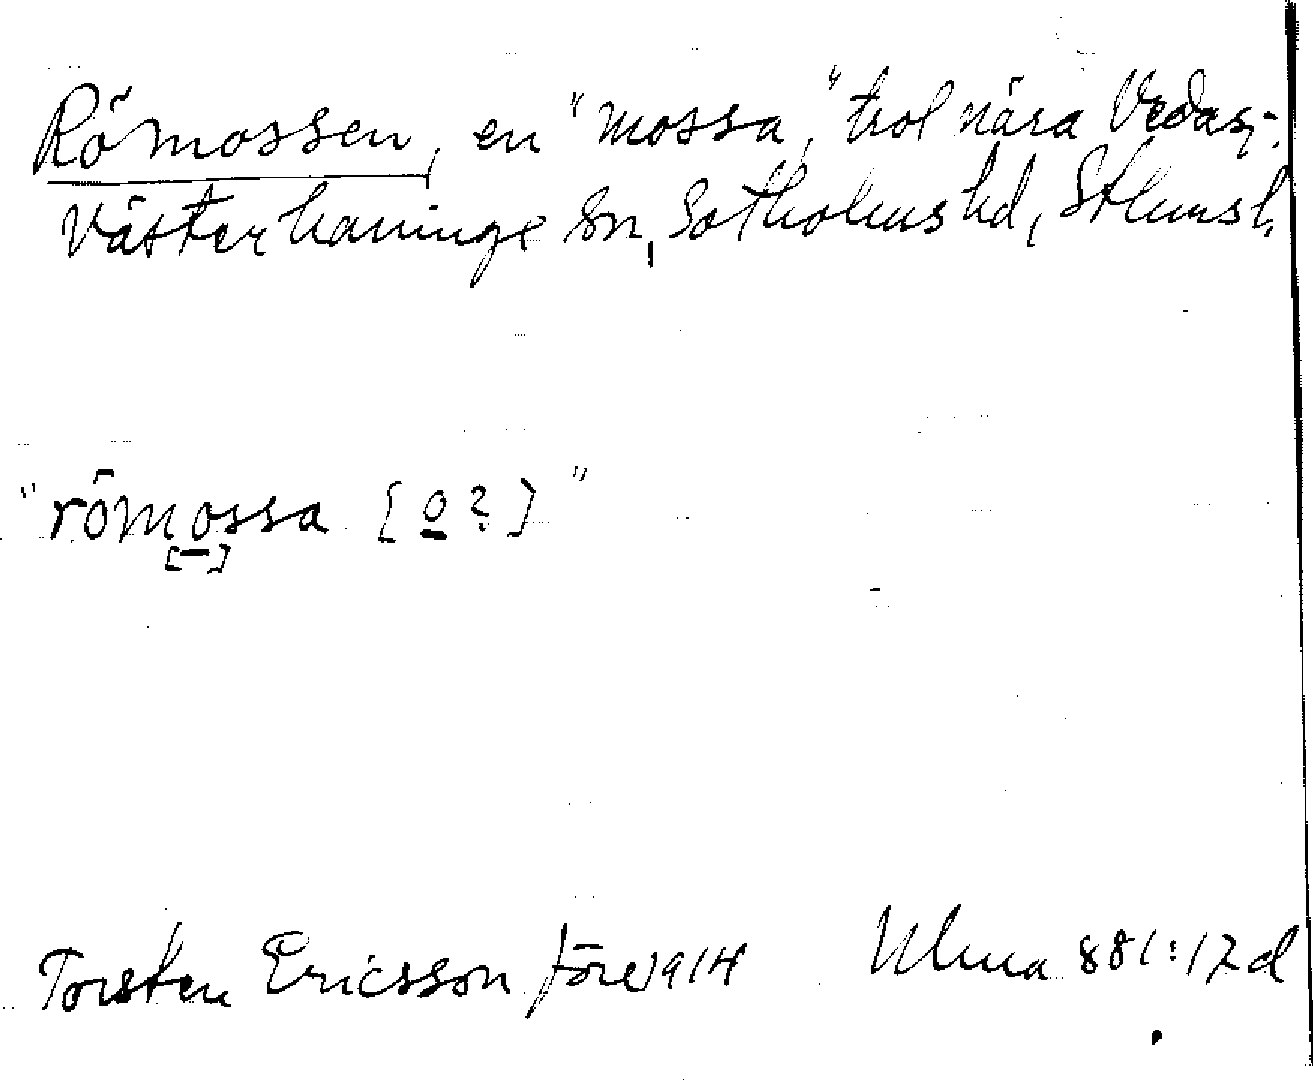 Römossen, en "mossa," trol nära Vedas;
Västerhaninge sn, Sotholms hd, Sthlms l.
"römossa [o?]"
[–]
Torsten Ericsson före 1914 Ulma 881:17 d